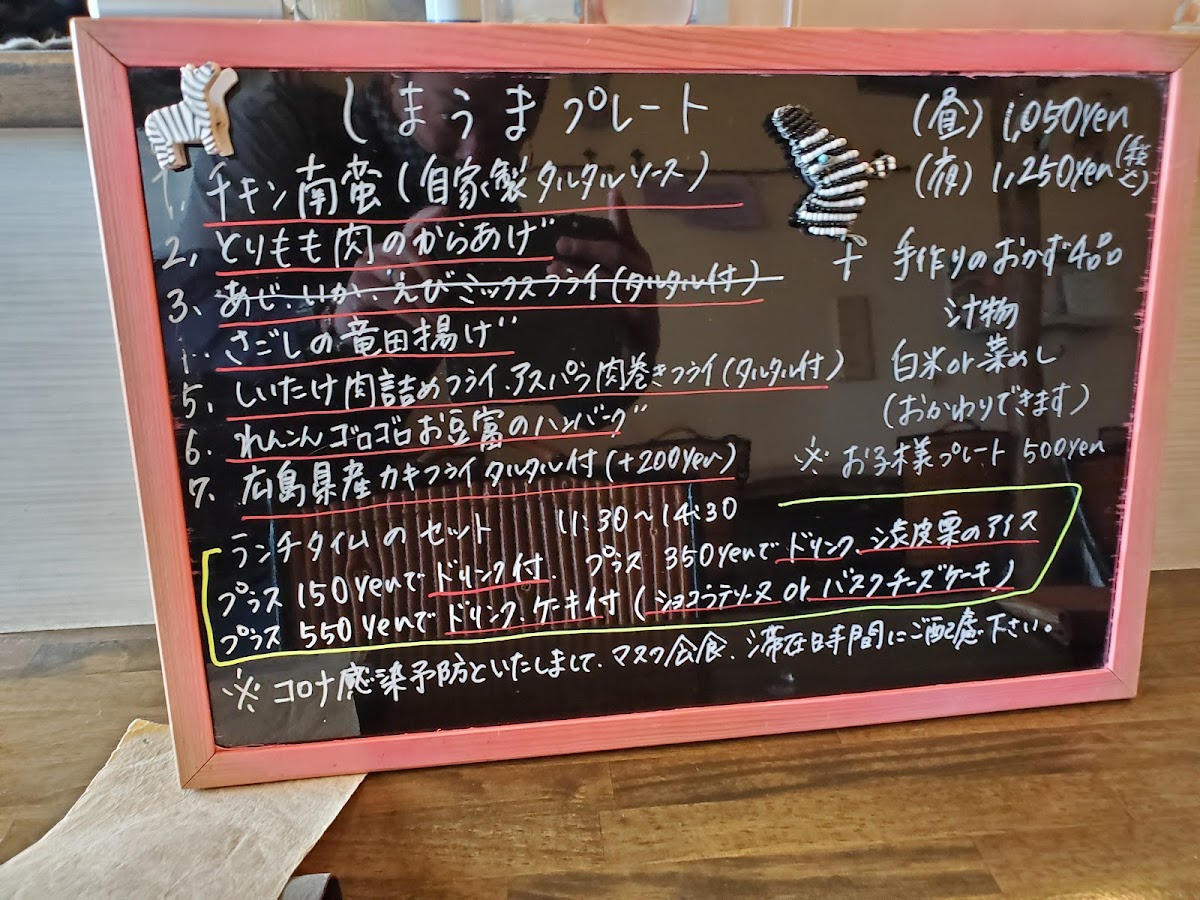 しまうまプレート
(昼) 1,050yen
(夜) 1,250yen (税込)
1、チキン南蛮(自家製タルタルソース)
2、とりもも肉のからあげ
3、あじ、いか、えびミックスフライ(タルタル付)
さごしの竜田揚げ
5、しいたけ肉詰めフライ、アスパラ肉巻きフライ(タルタル付)
6、れんこんゴロゴロお豆富のハンバーグ
7、広島県産カキフライタルタル付(+200yen)
+ 手作りのおかず4品
汁物
白米or菜めし
(おかわりできます)
※ お子様プレート 500yen
ランチタイムのセット 11:30~14:30
プラス 150yenでドリンク付、プラス 350yenでドリンク、渋皮栗のアイス
プラス 550yenでドリンク、ケーキ付(ショコラテリーヌ or バスクチーズケーキ)
※ コロナ感染予防といたしまして、マスク会食、滞在時間にご配慮下さい。